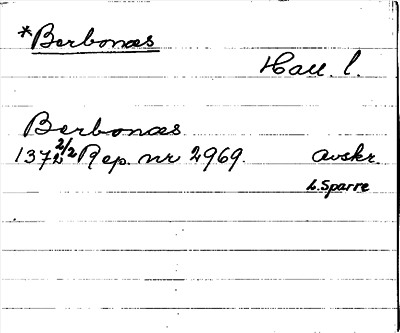 *Berbonæs
Hall. l.
Berbonæs
1372 2/2 Rep. nr 2969. avskr.
L. Sparre